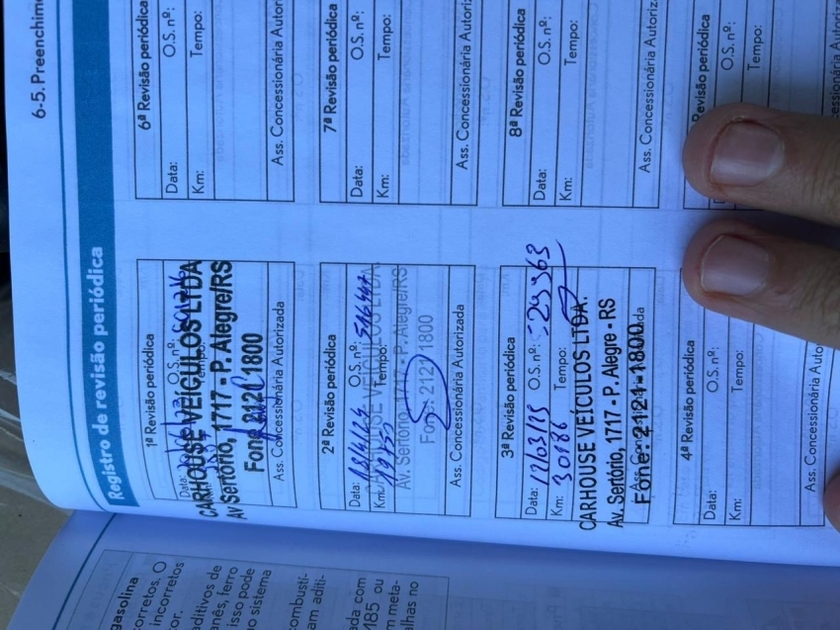 6-5. Preenchim
Registro de revisão periódica
1ª Revisão periódica
Data: O.S. nº:
CARHOUSE VEÍCULOS LTDA
AV Sertório, 1717 - P. Alegre/RS
Fone 2121 1800
Ass. Concessionária Autorizada
2ª Revisão periódica
Data: O.S. nº:
Km: Tempo:
CARHOUSE VEÍCULOS LTDA.
Av. Sertório 1717 - P. Alegre/RS
Fone: 2121 1800
Ass. Concessionária Autorizada
3ª Revisão periódica
Data: 12/03/15 O.S. nº: 29363
Km: 30186 Tempo:
CARHOUSE VEÍCULOS LTDA.
Av. Sertório, 1717 - P. Alegre - RS
Fone: 2121-1800
4ª Revisão periódica
Data: O.S. nº:
Km: Tempo:
Ass. Concessionária Au
6ª Revisão periódica
Data: O.S. nº:
Km: Tempo:
Ass. Concessionária Autor
7ª Revisão periódica
Data: O.S. nº:
Km: Tempo:
Ass. Concessionária Autori
8ª Revisão periódica
Data: O.S. nº:
Km: Tempo:
Ass. Concessionária Autoriz
Revisão periódica
O.S. nº:
Tempo:
gasolina
orretos. O
incorretos
or.
aditivos de
anês, ferro
isso pode
o sistema
ombusti-
am aditi-
ada com
185 ou
m meta-
alhas no